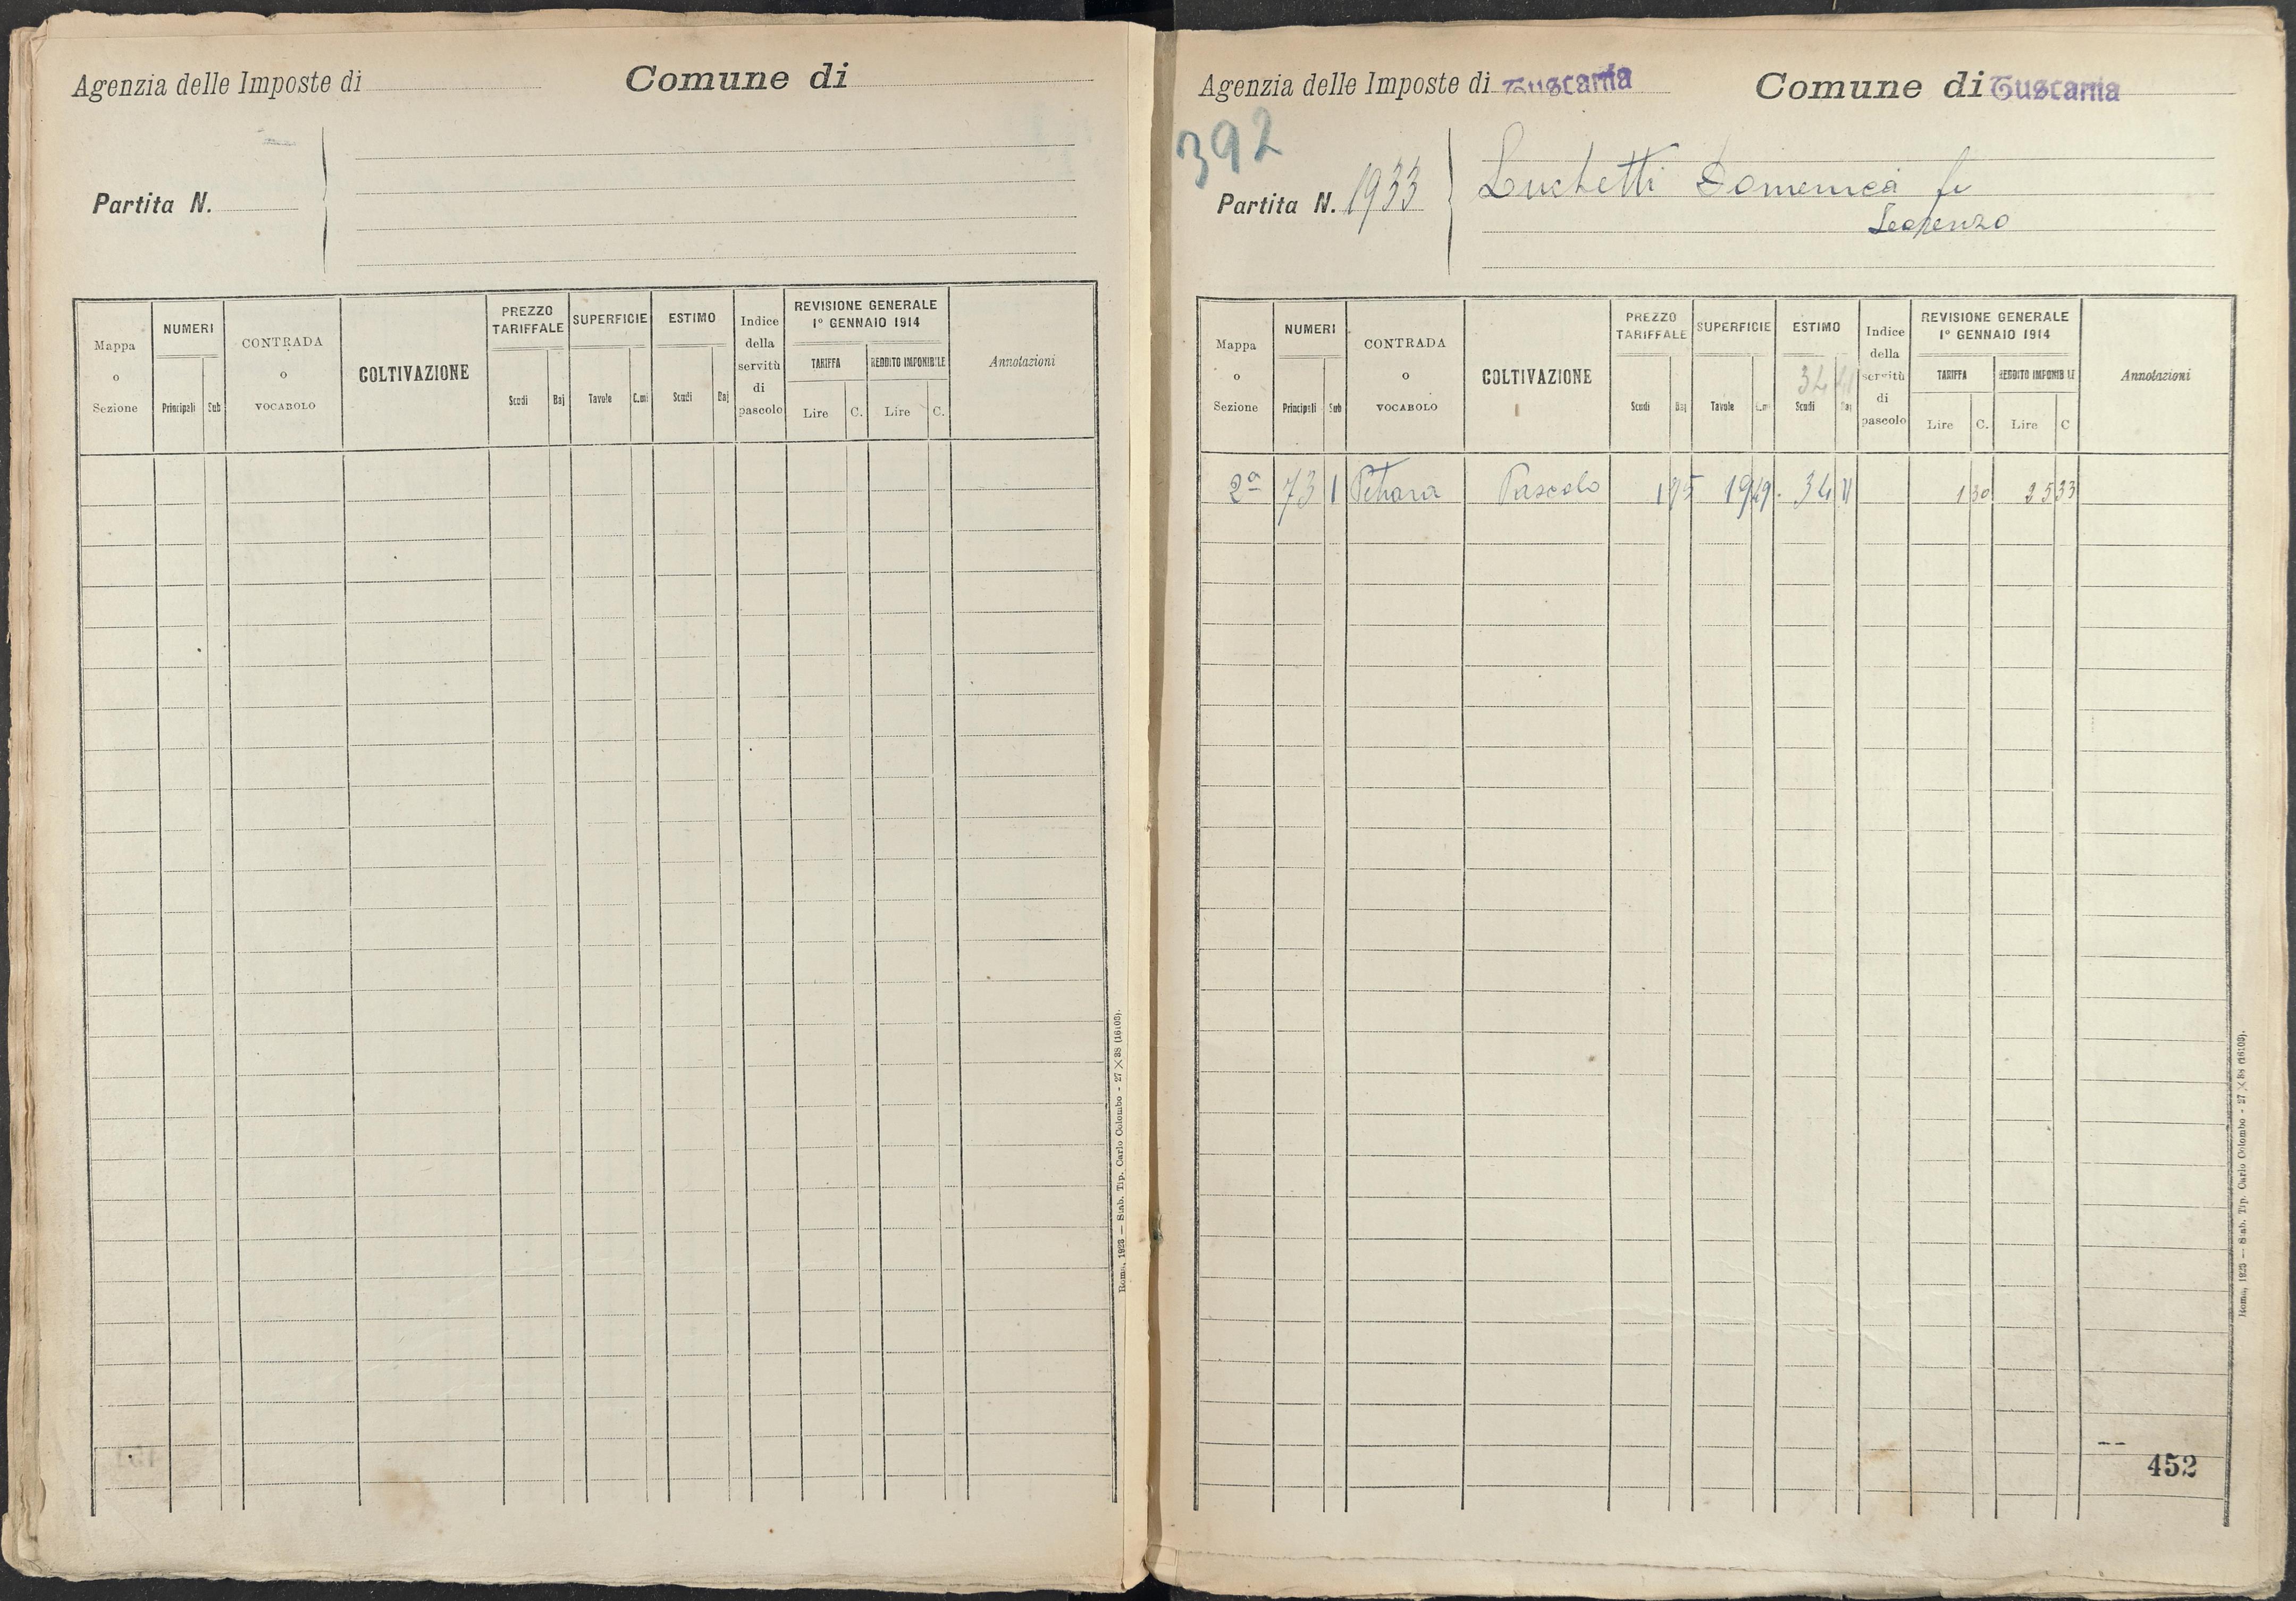 Agenzia delle Imposte di Comune di
Partita N.
Mappa o Sezione
NUMERI
Principali Sub
CONTRADA o VOCABOLO
COLTIVAZIONE
PREZZO TARIFFALE
Scudi Baj
SUPERFICIE
Tavole C.mi
ESTIMO
Scudi Baj
Indice della servitù di pascolo
REVISIONE GENERALE
1° GENNAIO 1914
TARIFFA REDDITO IMPONIBILE
Lire C. Lire C.
Annotazioni
Roma, 1923 — Stab. Tip. Carlo Colombo - 27 X 38 (16103).
Agenzia delle Imposte di Tuscania Comune di Tuscania
392
Partita N. 1933
Luchetti Domenica fu
Lorenzo
Mappa o Sezione
NUMERI
Principali Sub
CONTRADA o VOCABOLO
COLTIVAZIONE
PREZZO TARIFFALE
Scudi Baj
SUPERFICIE
Tavole C.mi
ESTIMO
34
Scudi Baj
Indice della servitù di pascolo
REVISIONE GENERALE
1° GENNAIO 1914
TARIFFA REDDITO IMPONIBILE
Lire C. Lire C
Annotazioni
2a 73 1 Pascolo 1 75 19 49 34 11 1 30 25 33
452
Stab. Tip. Carlo Colombo - 27 X 38 (16103).